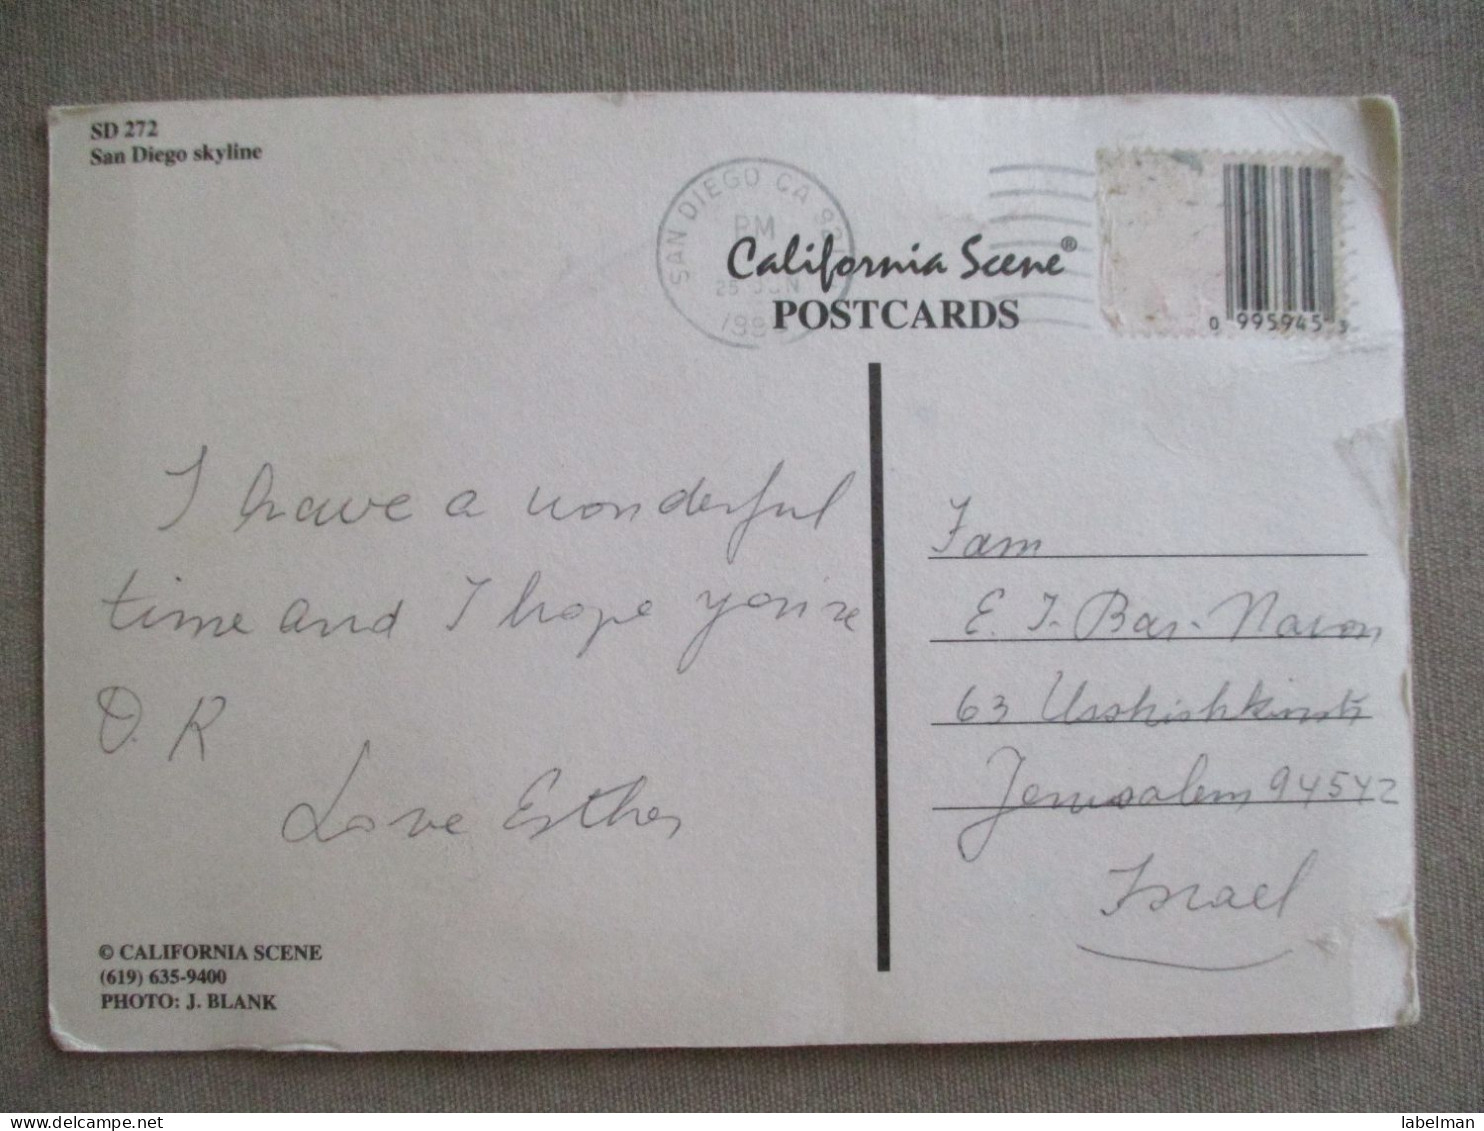 SD 272
San Diego skyline
SAN DIEGO CA
PM
25 JUN
California Scene®
POSTCARDS
0 995945 3
I have a wonderful
time and I hope you're
O.K
Love Esther
Fam
E. I. Bar-Navon
63 Usshishkinstr
Jerusalem 94542
Israel
© CALIFORNIA SCENE
(619) 635-9400
PHOTO: J. BLANK
labelman